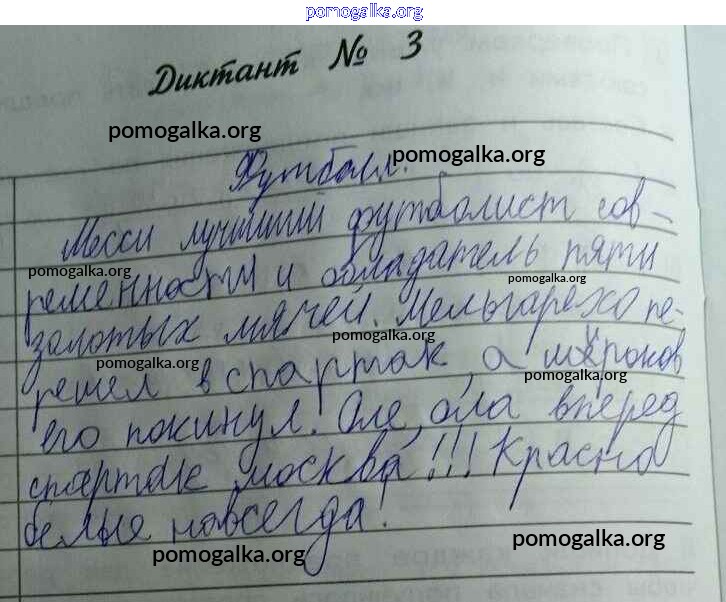 pomogalka.org
Диктант № 3
pomogalka.org
Футболл.
pomogalka.org
Месси лучший футболист сов-
pomogalka.org
pomogalka.org
ременности и обладатель пяти
золотых мячей. Мельгарехо пе-
pomogalka.org
решел в спартак, а широков
pomogalka.org
pomogalka.org
его покинул. Оле, ола вперед
спартак москва!!! Красно
белые навсегда!
pomogalka.org
pomogalka.org